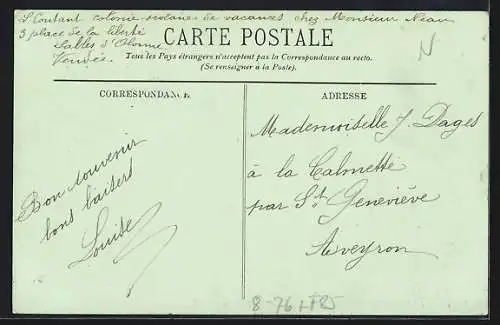 L Coutant colonie scolaire de vacances chez Monsieur Neau
3 place de la liberté
Sables d'Olonne
Vendée.
CARTE POSTALE
Tous les Pays étrangers n'acceptent pas la Correspondance au recto.
(Se renseigner à la Poste).
N
CORRESPONDANCE
Bon souvenir
bons baisers
Louise
ADRESSE
Mademoiselle J. Dages
à la Calmette
par St Geneviève
Aveyron
8-76